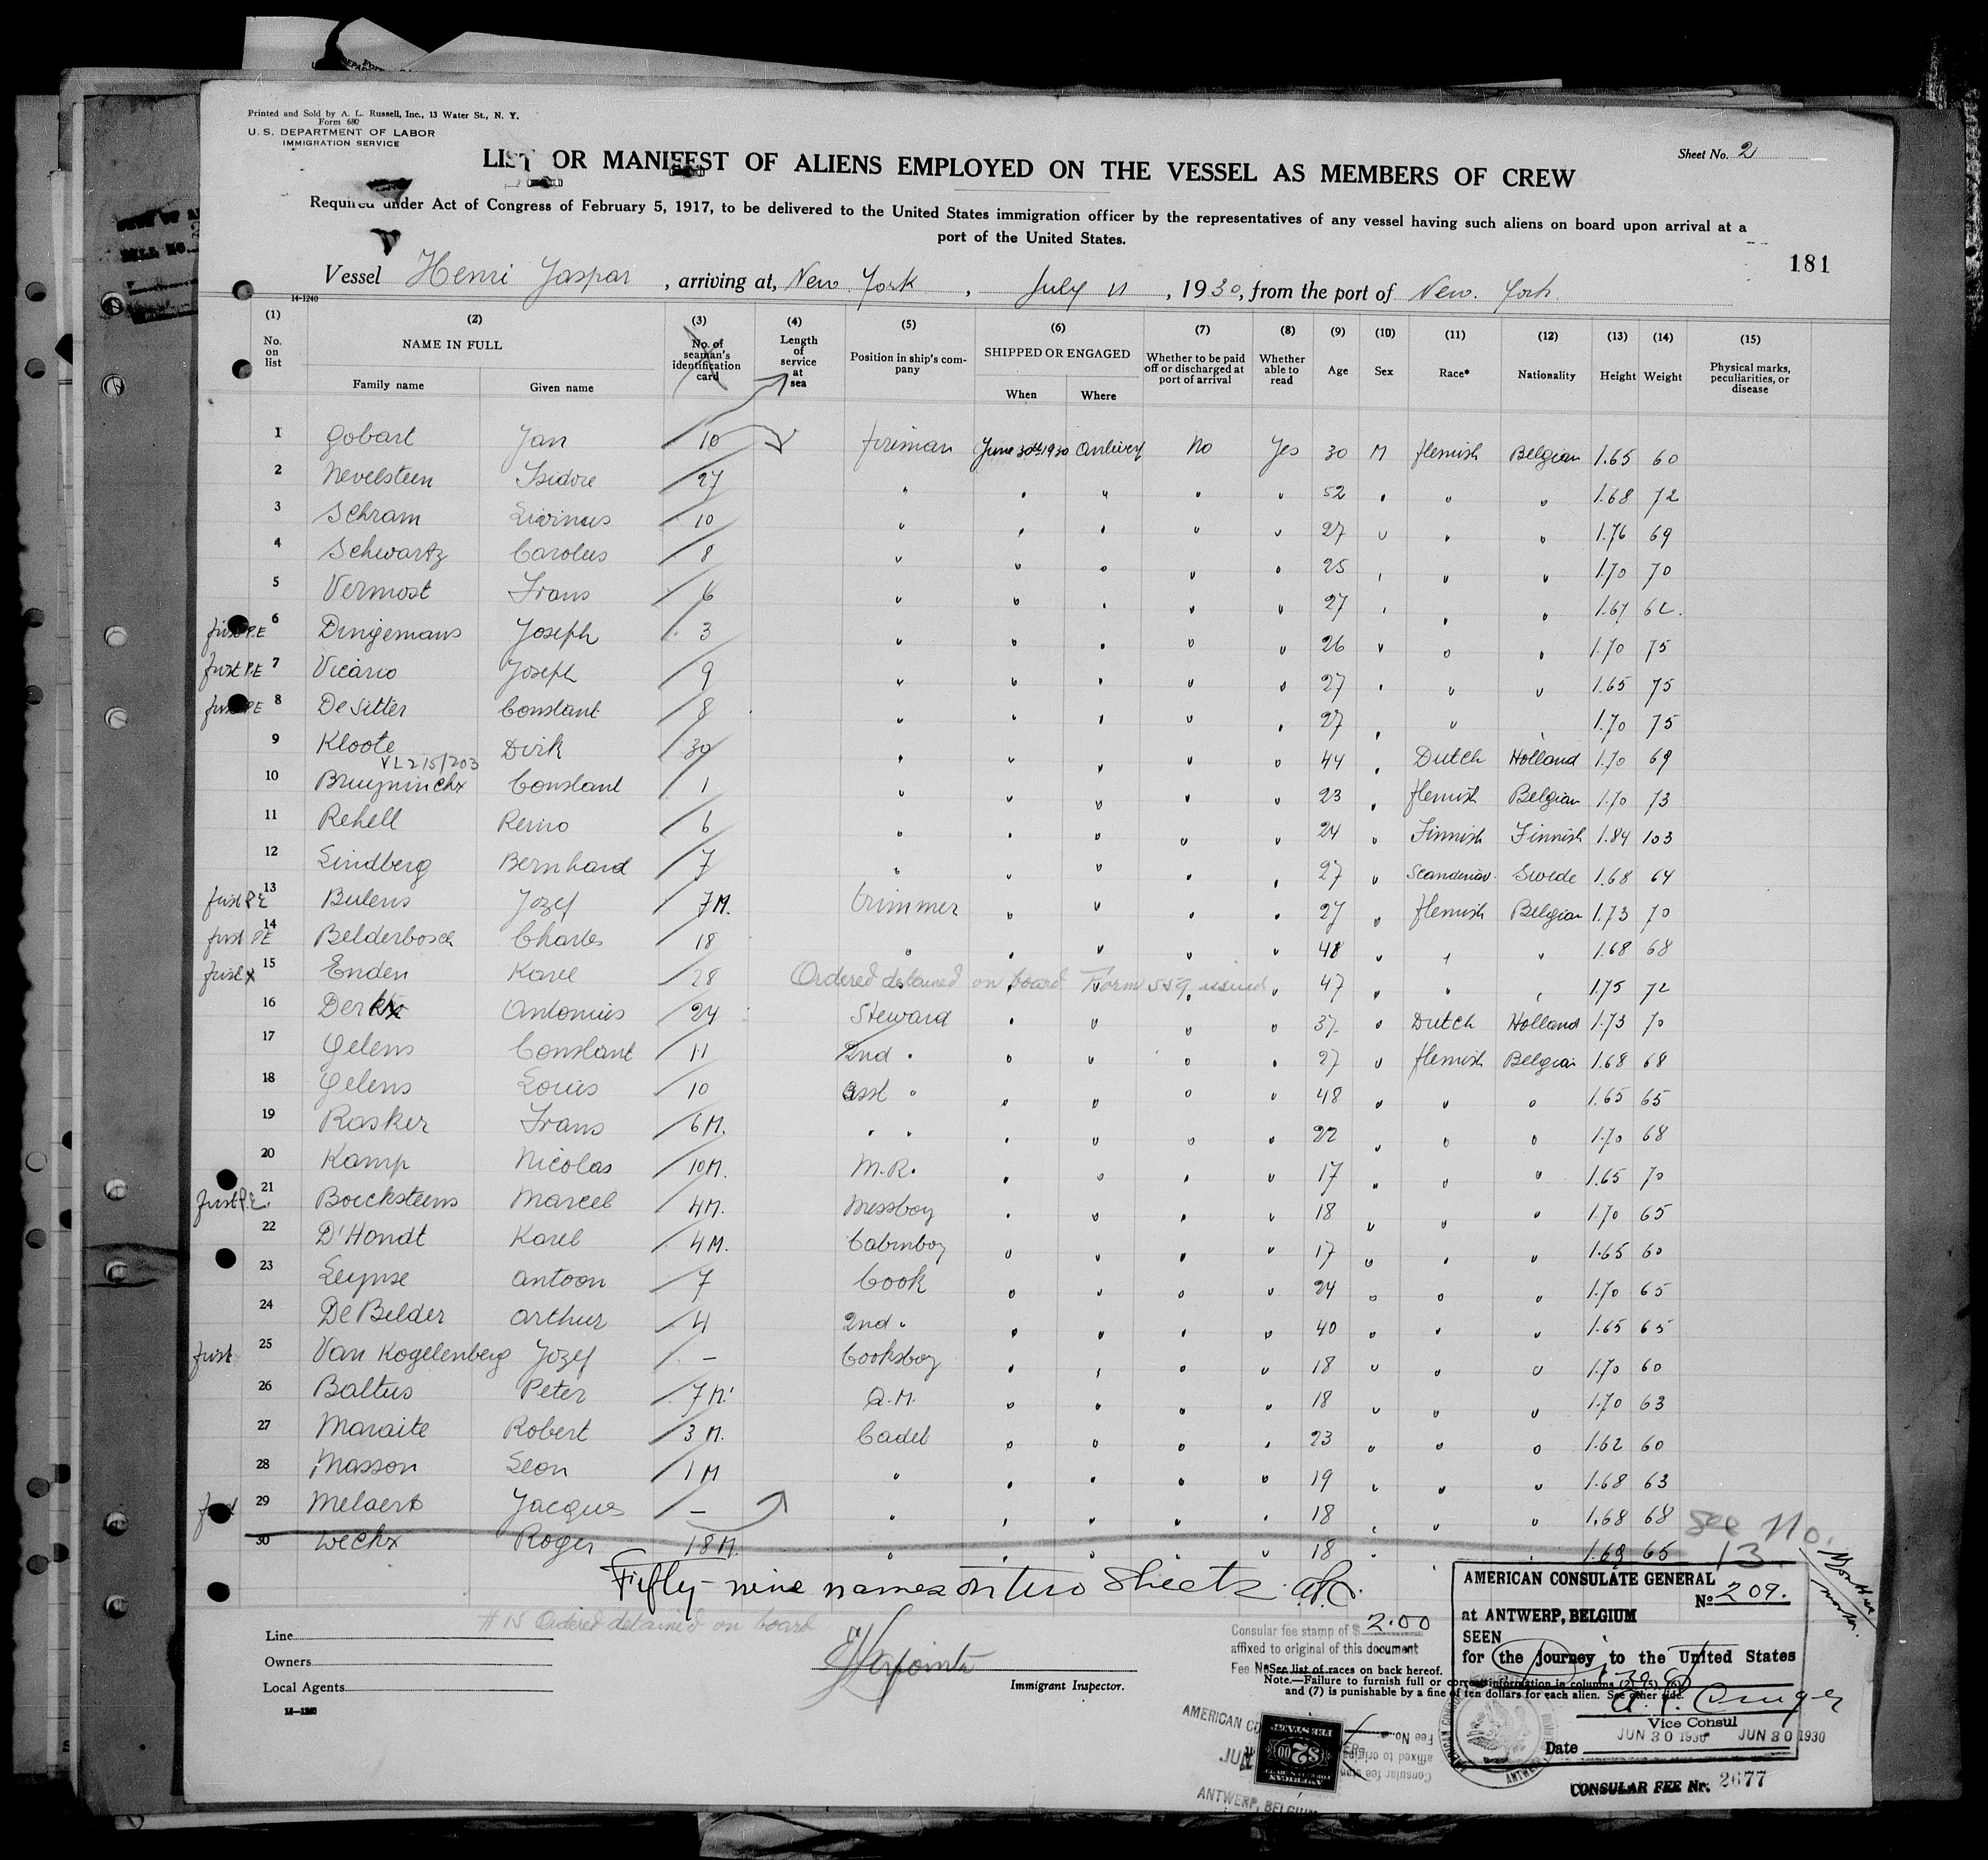 Printed and Sold by A. L. Russell, Inc., 13 Water St., N. Y.
Form 680
U. S. DEPARTMENT OF LABOR
IMMIGRATION SERVICE
Sheet No. 2
LIST OR MANIFEST OF ALIENS EMPLOYED ON THE VESSEL AS MEMBERS OF CREW
Required under Act of Congress of February 5, 1917, to be delivered to the United States immigration officer by the representatives of any vessel having such aliens on board upon arrival at a
port of the United States.
181
Vessel Henri Jaspar, arriving at, New York, July 11, 1930, from the port of New York
14-1240
(1) (2) (3) (4) (5) (6) (7) (8) (9) (10) (11) (12) (13) (14) (15)
No. on list NAME IN FULL Family name Given name No. of seaman's identification card Length of service at sea Position in ship's company SHIPPED OR ENGAGED When Where Whether to be paid off or discharged at port of arrival Whether able to read Age Sex Race* Nationality Height Weight Physical marks, peculiarities, or disease
1 Gobart Jan 10 fireman June 30th 1930 Antwerp No Yes 30 M flemish Belgian 1.65 60
2 Nevelsteen Isidore 27 " " " " " 52 " " " 1.68 72
3 Schram Livinus 10 " " " " " 27 " " " 1.76 69
4 Schwartz Carolus 8 " " " " " 25 " " " 1.70 70
5 Vermost Frans 6 " " " " " 27 " " " 1.67 62
first P.E 6 Dingemans Joseph 3 " " " " " 26 " " " 1.70 75
first P.E 7 Vicario Joseph 9 " " " " " 27 " " " 1.65 75
first PE 8 De Sitter Constant 8 " " " " " 27 " " " 1.70 75
9 Kloote Dirk 30 " " " " " 44 " Dutch Holland 1.70 69
VL 215/203
10 Bruyninckx Constant 1 " " " " " 23 " flemish Belgian 1.70 73
11 Rehell Reino 6 " " " " " 24 " Finnish Finnish 1.84 103
12 Lindberg Bernhard 7 " " " " " 27 " Scandinav. Swede 1.68 64
first P.E 13 Bulens Jozef 7 M. trimmer " " " " 27 " flemish Belgian 1.73 70
first PE 14 Belderbosch Charles 18 " " " " " 48 " " " 1.68 68
first X 15 Enden Karel 28 " " " " " 47 " " " 1.75 72
Ordered detained on board Form 559 issued
16 Derkx Antonius 24 Steward " " " " 37 " Dutch Holland 1.73 70
17 Gelens Constant 11 2nd " " " " " 27 " flemish Belgian 1.68 68
18 Gelens Louis 10 asst " " " " " 48 " " " 1.65 65
19 Rasker Frans 6 M. " " " " " " 22 " " " 1.70 68
20 Kamp Nicolas 10 M. M.R. " " " " 17 " " " 1.65 70
first P.E. 21 Boecksteens Marcel 4 M. Messboy " " " " 18 " " " 1.70 65
22 D'Hondt Karel 4 M. Cabinboy " " " " 17 " " " 1.65 60
23 Leynse Antoon 7 Cook " " " " 24 " " " 1.70 65
24 De Belder Arthur 4 2nd " " " " " 40 " " " 1.65 65
first 25 Van Kogelenberg Jozef - Cooksboy " " " " 18 " " " 1.70 60
26 Baltus Peter 7 M. Q.M. " " " " 18 " " " 1.70 63
27 Maraite Robert 3 M. Cadet " " " " 23 " " " 1.62 60
28 Masson Leon 1 M " " " " " 19 " " " 1.68 63
first 29 Melaert Jacques - " " " " " 18 " " " 1.68 68
30 Weckx Roger 18 M. " " " " " 18 " " " 1.69 65
See No. 13
Fifty-nine names on two sheets
# 15 Ordered detained on board
Line
Owners
Local Agents
Immigrant Inspector.
14-1240
Consular fee stamp of $ 2.00
affixed to original of this document
Fee No
*See list of races on back hereof.
Note.—Failure to furnish full or correct information in columns (2), (5), (6)
and (7) is punishable by a fine of ten dollars for each alien. See other side.
AMERICAN CONSULATE GENERAL
No 209.
at ANTWERP, BELGIUM
SEEN
for the journey to the United States
Vice Consul
JUN 30 1930 JUN 30 1930
Date
CONSULAR FEE Nr. 2677
ANTWERP, BELGIUM